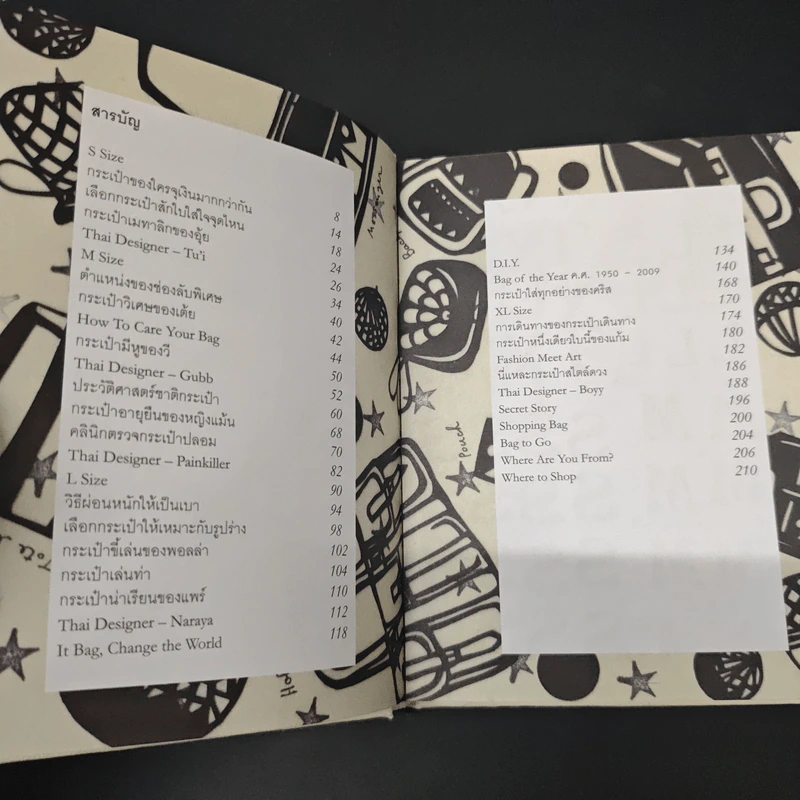 สารบัญ
S Size 8
กระเป๋าของใครจุเงินมากกว่ากัน 14
เลือกกระเป๋าสักใบใส่ใจจุดไหน 18
กระเป๋าเมทาลิกของอุ้ย 24
Thai Designer – Tu'i 26
M Size 34
ตำแหน่งของช่องลับพิเศษ 40
กระเป๋าวิเศษของเต้ย 42
How To Care Your Bag 44
กระเป๋ามีหูของวี 50
Thai Designer – Gubb 52
ประวัติศาสตร์ชาติกระเป๋า 60
กระเป๋าอายุยืนของหญิงแม้น 68
คลินิกตรวจกระเป๋าปลอม 70
Thai Designer – Painkiller 82
L Size 90
วิธีผ่อนหนักให้เป็นเบา 94
เลือกกระเป๋าให้เหมาะกับรูปร่าง 98
กระเป๋าขี้เล่นของพอลล่า 102
กระเป๋าเล่นท่า 104
กระเป๋าน่าเรียนของแพร์ 110
Thai Designer – Naraya 112
It Bag, Change the World 118
D.I.Y. 134
Bag of the Year ค.ศ. 1950 – 2009 140
กระเป๋าใส่ทุกอย่างของคริส 168
XL Size 170
การเดินทางของกระเป๋าเดินทาง 174
กระเป๋าหนึ่งเดียวใบนี้ของแก้ม 180
Fashion Meet Art 182
นี่แหละกระเป๋าสไตล์ดวง 186
Thai Designer – Boyy 188
Secret Story 196
Shopping Bag 200
Bag to Go 204
Where Are You From? 206
Where to Shop 210
Pouch